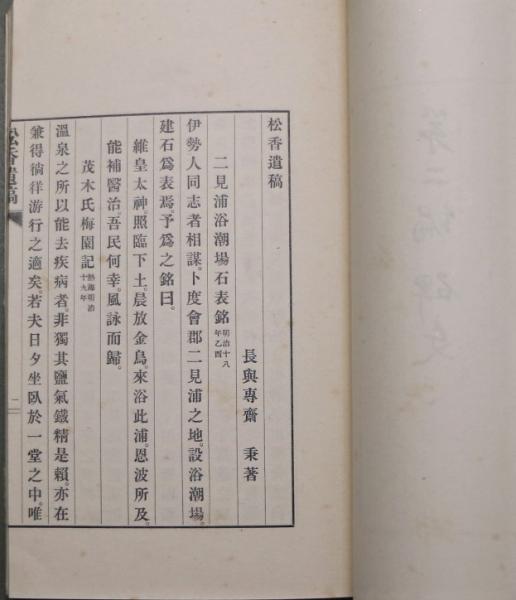 松香遺稿
長與專齋 秉著
二見浦浴潮場石表銘 明治十八年乙酉
伊勢人同志者相謀。卜度會郡二見浦之地。設浴潮場。
建石爲表焉。予爲之銘曰。
維皇太神。照臨下土。晨放金烏。來浴此浦。恩波所及。
能補醫治。吾民何幸。風詠而歸。
茂木氏梅園記 熱海明治十九年
溫泉之所以能去疾病者。非獨其鹽氣鐵精是賴。亦在
兼得徜徉游行之適矣。若夫日夕坐臥於一堂之中。唯
松香遺稿
一